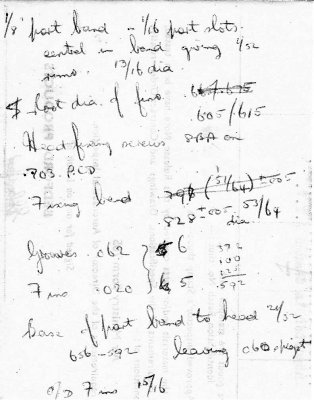 1/8" port band - 1/16 port slots.
central in band giving 1/32
rims. 13/16 dia.
Root dia. of fins .605/615
Head fixing screws 8BA on
.803 P.C.D
Fixing band 798 (51/64) ±.005
.828 ±.005 53/64 dia
Grooves .062 } 6 372
100
Fins .020 } 5 120
.592
Base of port band to head 21/32
656-592 leaving .060 spigot
O/D Fins 15/16